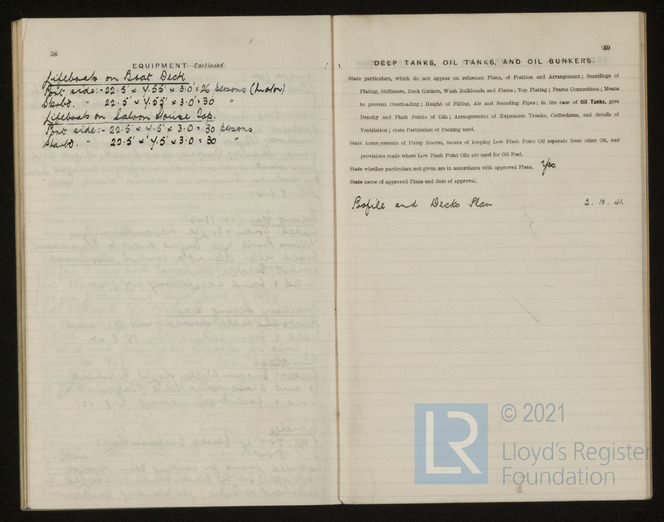 58
EQUIPMENT Continued.
Lifeboats on Boat Deck
Port side:- 22.5' x 4.55' x 3.0 = 26 persons (motor)
Starbd. " 22.5' x 4.55' x 3.0 = 30 "
Lifeboats on Saloon House Top.
Port side:- 22.5' x 4.5' x 3.0 = 30 persons
Starbd. " 22.5' x 4.5' x 3.0 = 30 "
59
DEEP TANKS, OIL TANKS, AND OIL BUNKERS.
State particulars, which do not appear on reference Plans, of Position and Arrangement; Scantlings of
Plating, Stiffeners, Deck Girders, Wash Bulkheads and Plates; Top Plating; Frame Connections; Means
to prevent Overloading; Height of Filling, Air and Sounding Pipes; in the case of Oil Tanks, give
Density and Flash Points of Oils; Arrangements of Expansion Trunks, Cofferdams, and details of
Ventilation; state Particulars of Packing used.
State Arrangements of Pump Rooms, means of keeping Low Flash Point Oil separate from other Oil, and
provisions made where Low Flash Point Oils are used for Oil Fuel.
State whether particulars not given are in accordance with approved Plans. Yes.
State name of approved Plans and date of approval.
Profile and Decks Plan 2.10.41.
LR
© 2021
Lloyd's Register
Foundation